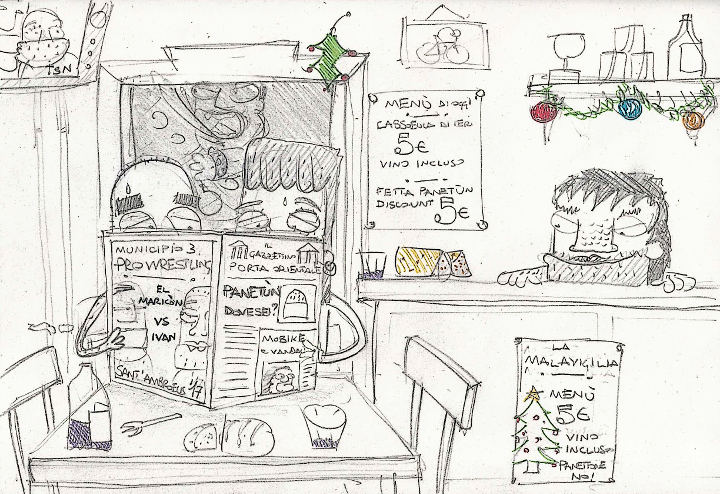 TSN
MENÙ DI OGGI
CASSOEULA DI IERI
5€
VINO INCLUSO
FETTA PANETÙN
DISCOUNT 5€
MUNICIPIO 3
PROWRESTLING
EL
MARICÒN
VS
IVAN
SANT'AMBROEUS
IL
GAZZETTINO
PORTA ORIENTALE
PANETUN
DOVESEI?
MOBIKE
E VANDALI
LA
MALAVIGILIA
MENÙ
5€
VINO
INCLUSO
PANETONE
NO!